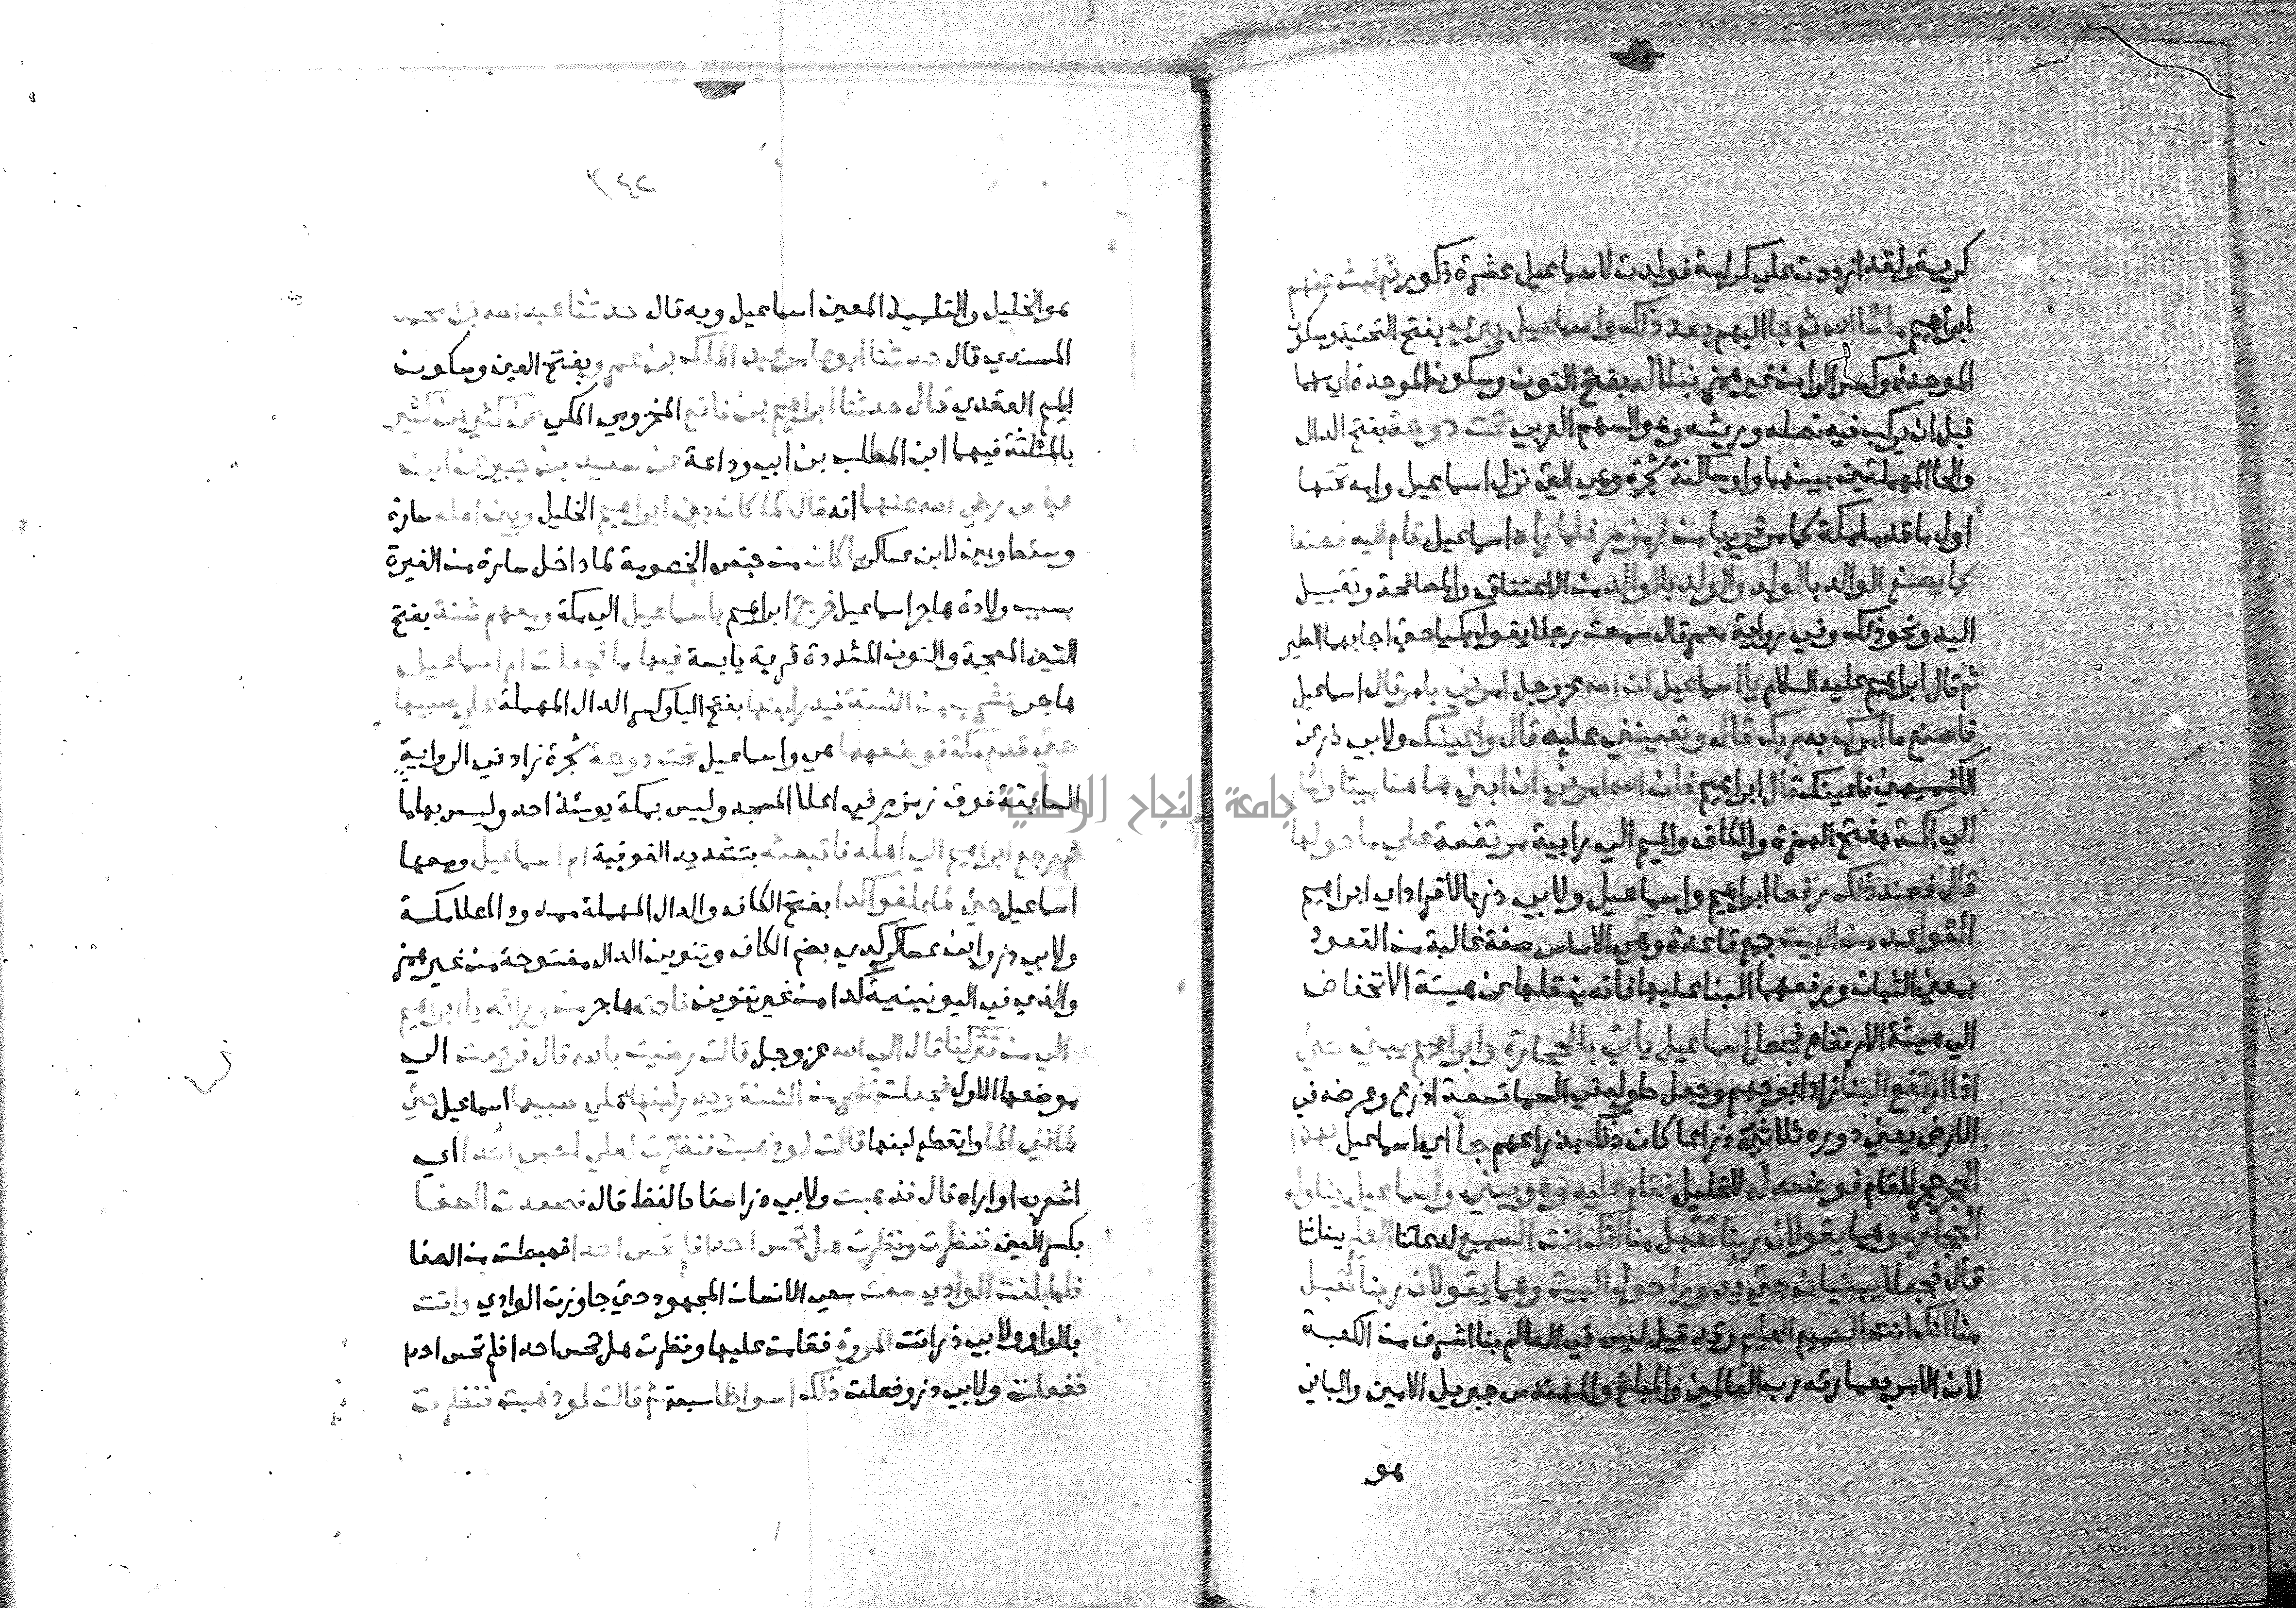 كريمة ولقد ازددت علي كرامة فولدت لاسماعيل عشرة ذكور ثم لبث عنهم
ابراهيم ما شا الله ثم جا اليهم بعد ذلك واسماعيل يبري بفتح التحتية وسكون
الموحدة وكسر الرا من غير همز نبلا له بفتح النون وسكون الموحدة اي سهما
قبل ان يركب فيه نصله وريشه وهو السهم العربي تحت دوحة بفتح الدال
والحا المهملتين بينهما واو ساكنة شجرة وهي التي نزل اسماعيل وامه تحتها
اول ما قدما مكة كما مر قريبا من زمزم فلما راه اسماعيل قام اليه فصنعا
كما يصنع الوالد بالولد والولد بالوالد من الاعتناق والمصافحة وتقبيل
اليد ونحو ذلك وفي رواية معمر قال سمعت رجلا يقول بكيا حتي اجابهما الطير
ثم قال ابراهيم عليه السلام يا اسماعيل ان الله عز وجل امرني بامر قال اسماعيل
فاصنع ما امرك به ربك قال وتعينني عليه قال واعينك ولابي ذر عن
الكشميهني فاعينك قال ابراهيم فان الله امرني ان ابني هاهنا بيتا واشار
الي اكمة بفتح الهمزة والكاف والميم الي رابية مرتفعة علي ما حولها
قال فعند ذلك رفعا ابراهيم واسماعيل ولابي ذر بالافراد اي ابراهيم
القواعد من البيت جمع قاعدة وهي الاساس صفة غالبة من القعود
بمعني الثبات ورفعها البنا عليها فانه ينقلها عن هيئة الانخفاض
الي هيئة الارتفاع فجعل اسماعيل ياتي بالحجارة وابراهيم يبني حتي
اذا ارتفع البنا زاد ابو جهم وجعل طوله في السما تسعة اذرع وعرضه في
الارض يعني دوره ثلاثين ذراعا كان ذلك بذراعهم جا اي اسماعيل بهذا
الحجر حجر المقام فوضعه له للخليل فقام عليه وهو يبني واسماعيل يناوله
الحجارة وهما يقولان ربنا تقبل منا انك انت السميع لدعائنا العليم ببنائنا
قال فجعلا يبنيان حتي يدورا حول البيت وهما يقولان ربنا تقبل
منا انك انت السميع العليم وقد قيل ليس في العالم بنا اشرف من الكعبة
لان الامر بعمارته رب العالمين والمبلغ والمهندس جبريل الامين والباني
هو
٣٤٢
هو الخليل والتلميذ المعين اسماعيل وبه قال حدثنا عبد الله بن محمد
المسندي قال حدثنا ابو عامر عبد الملك بن عمرو بفتح العين وسكون
الميم العقدي قال حدثنا ابراهيم بن نافع المخزومي المكي عن كثير بن كثير
بالمثلثة فيهما ابن المطلب بن ابي وداعة عن سعيد بن جبير عن ابن
عباس رضي الله عنهما انه قال لما كان بين ابراهيم الخليل وبين اهله سارة
وسقط وبين لابن عساكر ما كان من جنس الخصومة لما داخل سارة من الغيرة
بسبب ولادة هاجر اسماعيل خرج ابراهيم باسماعيل الي مكة ومعهم شنة بفتح
الشين المعجمة والنون المشددة قربة يابسة فيها ما فجعلت ام اسماعيل
هاجر تشرب من الشنة فيدر لبنها بفتح اليا وكسر الدال المهملة علي صبيها
حتي قدم مكة فوضعهما هي واسماعيل تحت دوحة شجرة زاد في الرواية
السابقة فوق زمزم في اعلا المسجد وليس بمكة يومئذ احد وليس بها ما
ثم رجع ابراهيم الي اهله فاتبعته بتشديد الفوقية ام اسماعيل ومعها
اسماعيل حتي لما بلغوا كدا بفتح الكاف والدال المهملة ممدود اعلا مكة
ولابي ذر وابن عساكر كدي بضم الكاف وتنوين الدال مفتوحة من غير همز
والذي في اليونينية كدا من غير تنوين نادته هاجر من ورائه يا ابراهيم
الي من تتركنا قال الي الله عز وجل قالت رضيت بالله قال فرجعت الي
موضعها الاول فجعلت تشرب من الشنة ويدر لبنها علي صبيها اسماعيل حتي
لما فني الما وانقطع لبنها قالت لو ذهبت فنظرت لعلي احس احدا اي
اشعر به او اراه قال فذهبت ولابي ذر اسقاط لفظ قال فصعدت الصفا
بكسر العين فنظرت ونظرت هل تحس احدا فلم تحس احدا فهبطت من الصفا
فلما بلغت الوادي سعت سعي الانسان المجهود حتي جاوزت الوادي واتت
بالواو ولابي ذر اتت المروة فقامت عليها ونظرت هل تحس احدا فلم تحس احدا
ففعلت ولابي ذر وفعلت ذلك اشواطا سبعة ثم قالت لو ذهبت فنظرت
جامعة النجاح الوطنية